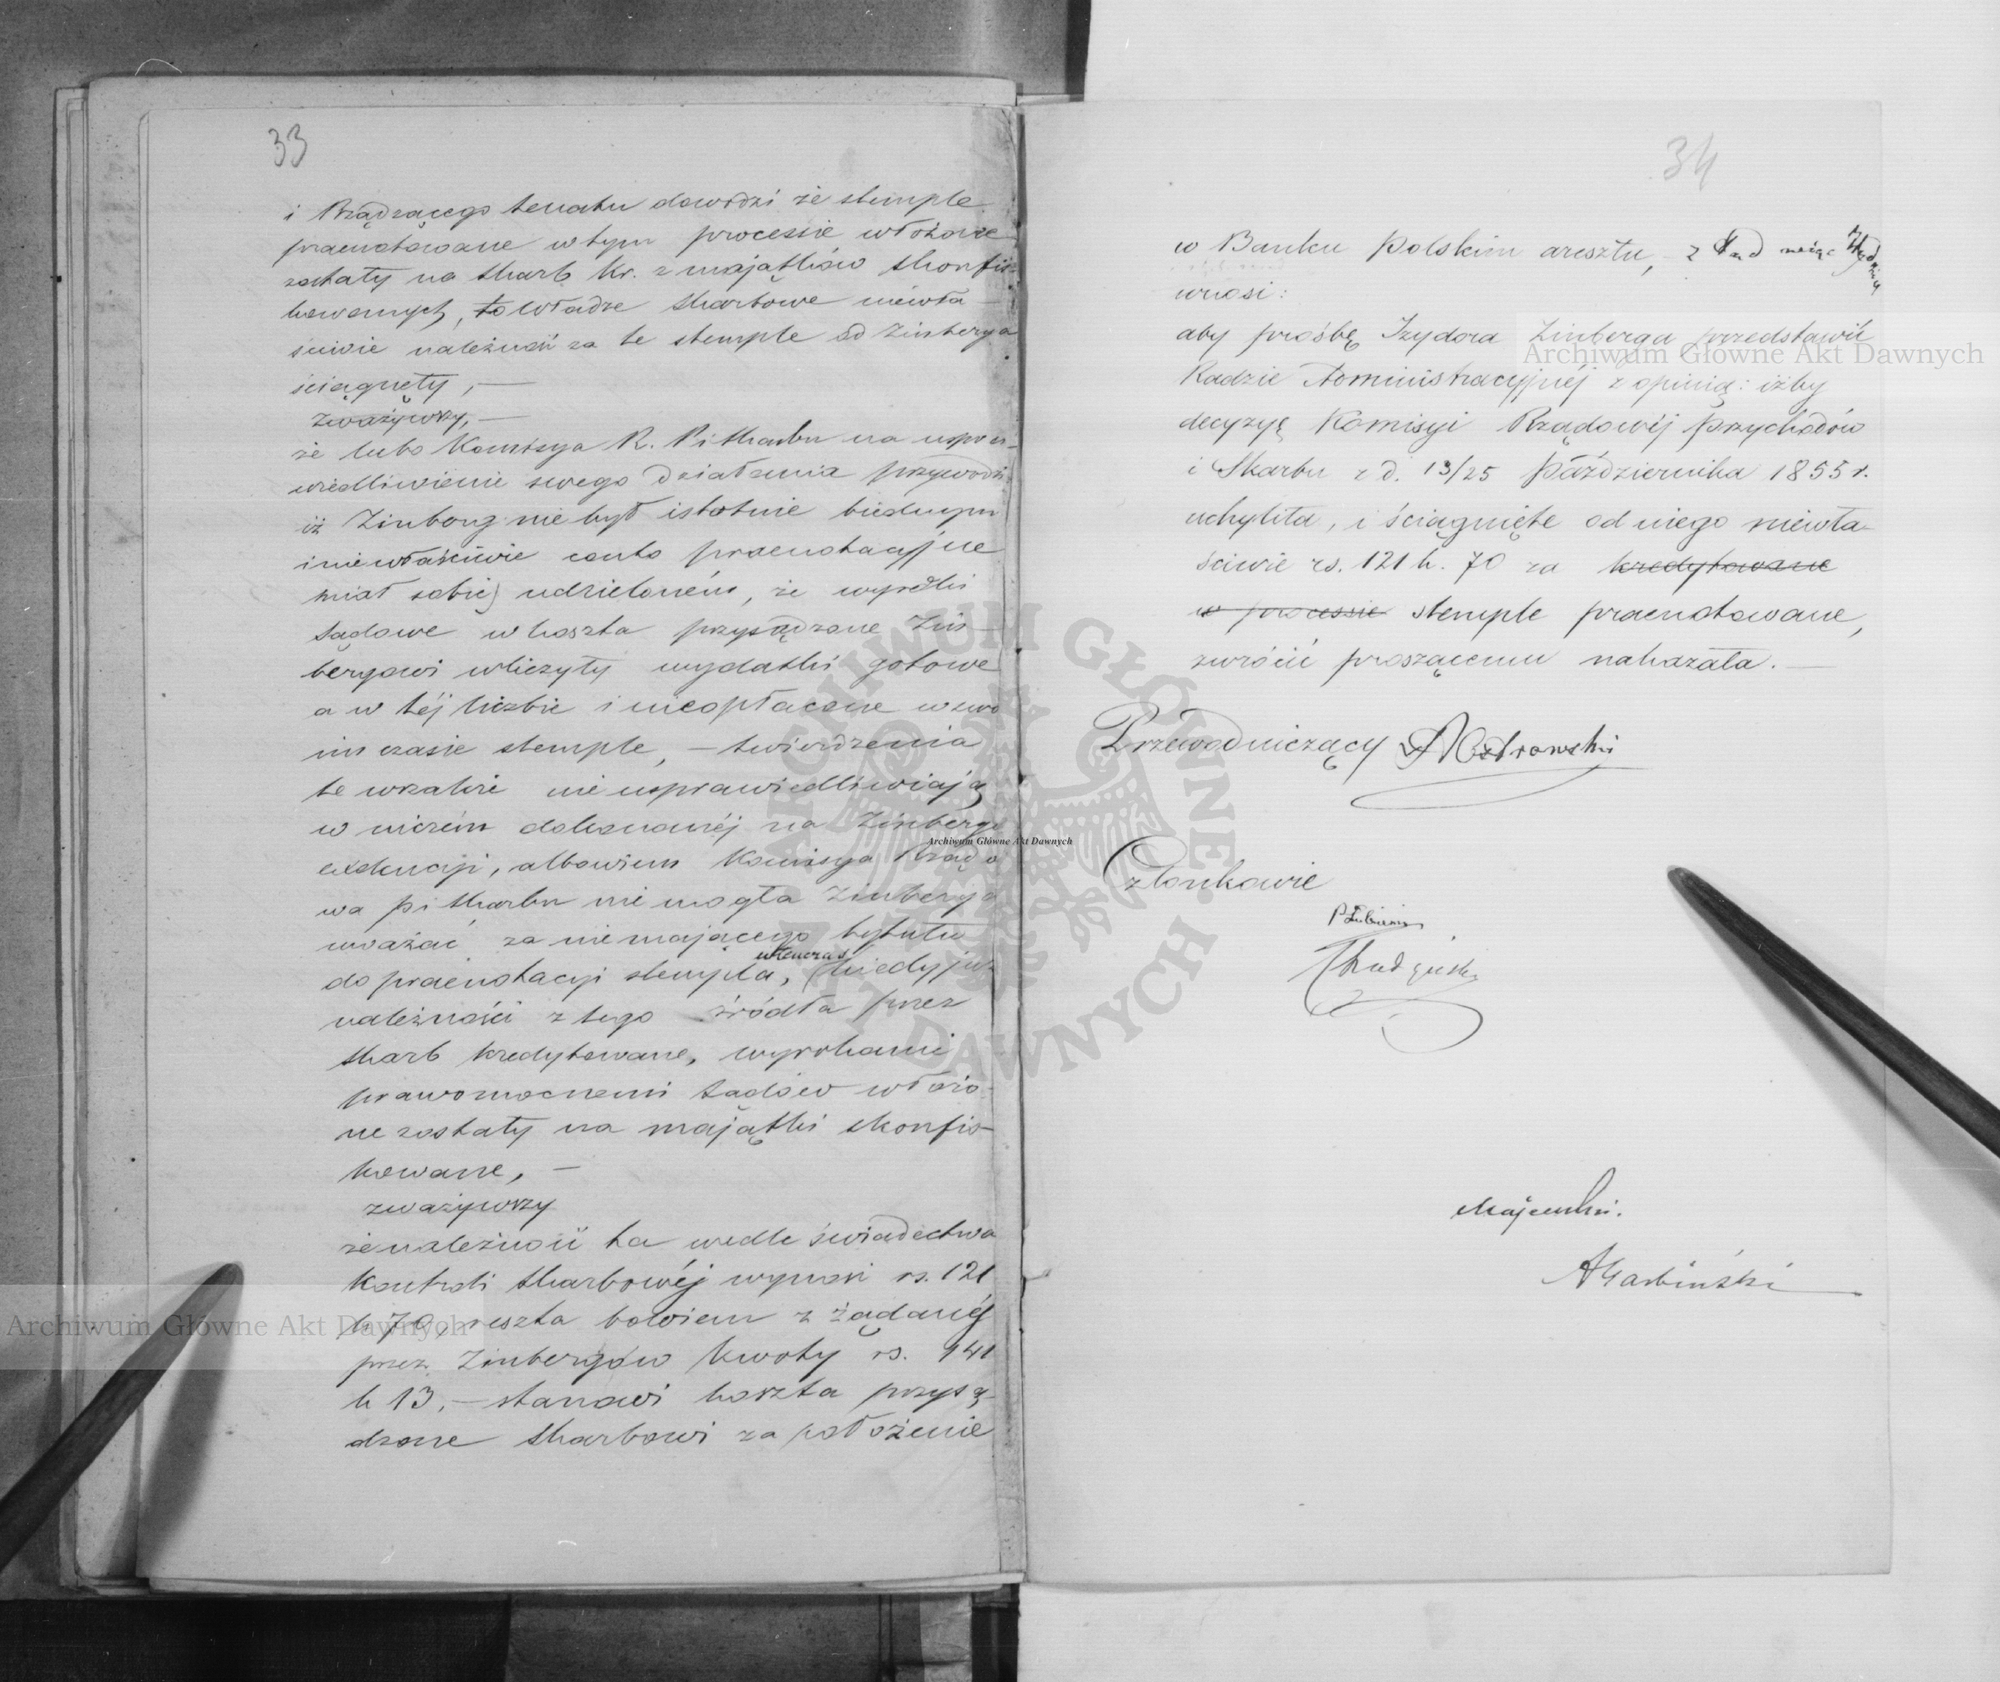 33
i Rządzącego Senatu dowodzi że stemple
praenotowane w tym procesie włożone
zostały na skarb Kr. z majątków skonfis-
kowanych, to Władze skarbowe niewła-
ściwie należność za te stemple od Zinberga
ściągnęły, —
zważywszy, —
że lubo Komisya R. P. i Skarbu na uspra-
wiedliwienie swego działania przywodzi
iż Zinberg nie był istotnie biednym
i niewłaściwie conto praenotacyjne
miał sobie udzielonem, że wyroki
Sądowe w koszta przysądzone Zin-
bergowi wliczyły wydatki gotowe
a w tej liczbie i nieopłacone w swo
im czasie stemple, — twierdzenia
te wszakże nie usprawiedliwiają
w niczém dokonanej na Zinbergu
exekucyi, albowiem Komisya Rządo
wa P i Skarbu nie mogła Zinberga
uważać za nie mającego tytułu
do praenotacyi stempla, wtenczas kiedy już
należności z tego źródła przez
skarb kredytowane, wyrokami
prawomocnemi Sądów włożo-
ne zostały na majątki skonfis-
kowane, —
zważywszy
że należność ta wedle świadectwa
Kontroli skarbowéj wynosi rs. 121
k 70, reszta bowiem z żądanéj
przez Zinbergów kwoty rs. 141
k 13, — stanowi koszta przysą-
dzone skarbowi za położenie
34
w Banku Polskim aresztu, z
wnosi:
aby prośbę Izydora Zinberga przedstawić
Radzie Administracyjnéj z opinią: iżby
decyzyę Komisyi Rządowéj Przychodów
i Skarbu z d. 13/25 Października 1855 r.
uchyliła, i ściągnięte od niego niewła-
ściwie rs. 121 k. 70 za kredytowane
w processie stemple praenotowane,
zwrócić proszącemu nakazała. —
Przewodniczący A Ostrowski
Członkowie
Majewski.
A Garbiński
Archiwum Główne Akt Dawnych
Archiwum Główne Akt Dawnych
Archiwum Główne Akt Dawnych
ARCHIWUM GŁÓWNE AKT DAWNYCH